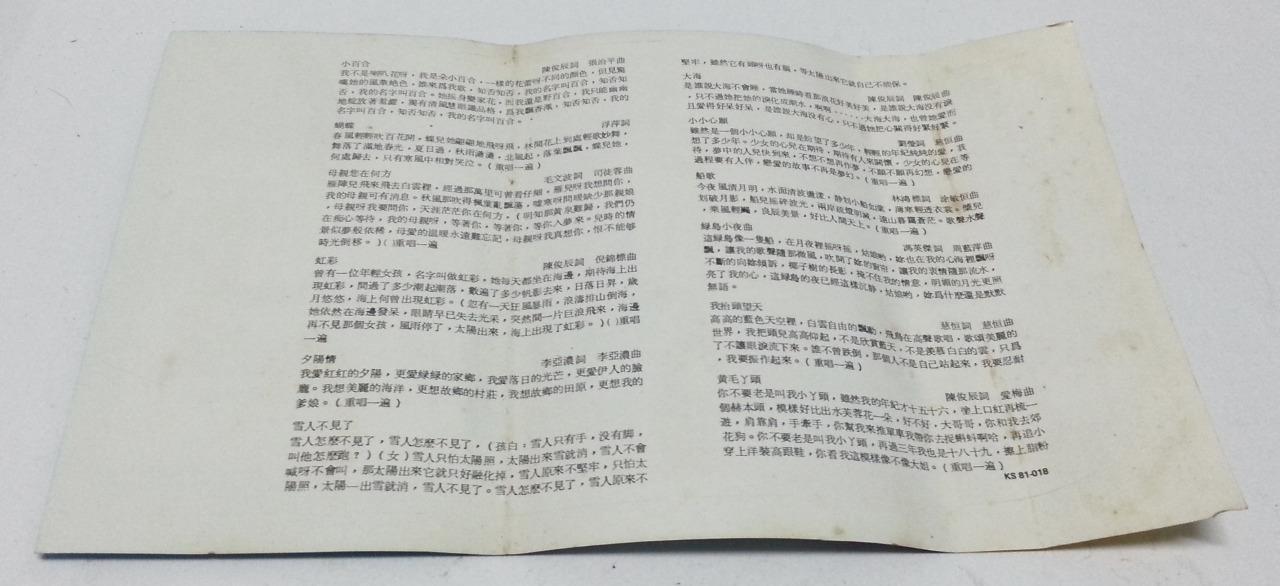 小百合 陳俊辰詞 張治平曲
我不是喇叭花呀，我是朵小百合，一樣的花蕾呀不同的顏色，但見驚
嘆她的風華絕色，誰來爲我歌，知否知否，我的名字叫百合，知否知
否，我的名字叫百合。她搖身變家花，而我還是野百合，我只能幽幽
地綻放著羞澀，獨有清風慧眼識品格，爲我飄香漢，知否知否，我的
名字叫百合，知否知否，我的名字叫百合。
蝴蝶 浮萍詞
春風輕輕吹百花開，蝶兒她翩翩地飛呀飛，林間花上到處輕歌妙舞，
舞落了滿地春光，夏日過，秋雨瀟瀟，北風起，落葉飄飄，蝶兒她，
何處歸去，只有寒風中相對哭泣。(重唱一遍)
母親您在何方 毛文波詞 司徒容曲
雁陣兒飛來飛去白雲裡，經過那萬里可曾看仔細，雁兒呀我想問你，
我的母親可有消息。秋風那吹得楓葉亂飄蕩，噓寒呀問暖缺少那親娘
，母親呀我要問你，天涯茫茫你在何方，(明知那黃泉難歸，我們仍
在痴心等待，我的母親呀，等著你，等著你，等你入夢來。兒時的情
景似夢般依稀，母愛的溫暖永遠難忘記，母親呀我真想你，恨不能够
時光倒移。)()重唱一遍
虹彩 陳俊辰詞 倪錦標曲
曾有一位年輕女孩，名字叫做虹彩，她每天都坐在海邊，期待海上出
現虹彩，問過了多少潮起潮落，數遍了多少帆影去來，日落日昇，歲
月悠悠，海上何曾出現虹彩。(忽有一天狂風暴雨，浪濤排山倒海，
她依然在海邊發呆，眼睛早已失去光采，突然間一片巨浪飛來，海邊
再不見那個女孩，風雨停了，太陽出來，海上出現了虹彩。)()重唱
一遍
夕陽情 李亞濃詞 李亞濃曲
我愛紅紅的夕陽，更愛綠綠的家鄉，我愛落日的光芒，更愛伊人的臉
龐。我想美麗的海洋，更想故鄉的村莊，我想故鄉的田原，更想我的
爹娘。(重唱一遍)
雪人不見了
雪人怎麽不見了，雪人怎麽不見了，(孩白：雪人只有手，没有脚，
叫他怎麽跑？)(女)雪人只怕太陽照，太陽出來雪就消，雪人不會
喊呀不會叫，那太陽出來它就只好融化掉，雪人原來不堅牢，只怕太
陽照，太陽一出雪就消，雪人不見了。雪人怎麽不見了，雪人原來不
堅牢，雖然它有頭呀也有腦，等太陽出來它就自己不能保。
大海 陳俊辰詞 陳俊辰曲
是誰說大海不會睡，當她睡時看那浪花好美好美，是誰說大海没有淚
，只不過她把她的淚化成潮水，啊啊……大海大海，也曾她愛而
且愛得好呆好呆，是誰說大海没有心，只不過她把心關得好緊好緊。
小小心願 劉瑩詞 慈恒曲
雖然是一個小小心願，却是盼望了多少年，輕輕的年紀純純的愛，我
想了多少年。少女的心兒在期待，期待有人來關懷，少女的心兒在等
待，夢中的人兒快到來，不想不想再作夢，不願不願再幻想，戀愛的
過程要有人伴，戀愛的故事不再是夢幻。(重唱一遍)
船歌 林鴻標詞 涂敏恒曲
今夜風清月明，水面清波盪漾，靜划小船如進，薄寒輕透衣裳。槳兒
划破月影，船兒搖碎波光，兩岸底燈明滅，遠山暮靄蒼茫。歌聲水聲
，乘風輕颺，良辰美景，好比人間天上。(重唱一遍)
綠島小夜曲 馮英傑詞 周藍萍曲
這綠島像一隻船，在月夜裡搖呀搖，姑娘喲，妳也在我的心海裡飄呀
飄，讓我的歌聲隨那微風，吹開了妳的窗帘，讓我的衷情隨那流水，
不斷的向妳傾訴，椰子樹的長影，掩不住我的情意，明媚的月光更照
亮了我的心，這綠島的夜已經這樣沉静，姑娘喲，妳爲什麼還是默默
無語。
我抬頭望天 慈恒詞 慈恒曲
高高的藍色天空裡，白雲自由的飄動，飛鳥在高聲歌唱，歌頌美麗的
世界，我把頭兒高高仰起，不是欣賞藍天，不是羨慕白白的雲，只爲
了不讓眼淚流下來。誰不曾跌倒，那個人不是自己站起來，我要忍耐
，我要振作起來。(重唱一遍)
黃毛丫頭 陳俊辰詞 愛梅曲
你不要老是叫我小丫頭，雖然我的年紀才十五十六，塗上口紅再梳一
個赫本頭，模樣好比出水芙蓉花一朵，好不好，大哥哥，你和我去郊
遊，肩靠肩，手牽手，你幫我來推單車我帶你去捉蝌蚪啊哈，再追小
花狗。你不要老是叫我小丫頭，再過三年我也是十八十九，擦上脂粉
穿上洋裝高跟鞋，你看我這模樣像不像大姐。(重唱一遍)
KS 81-018